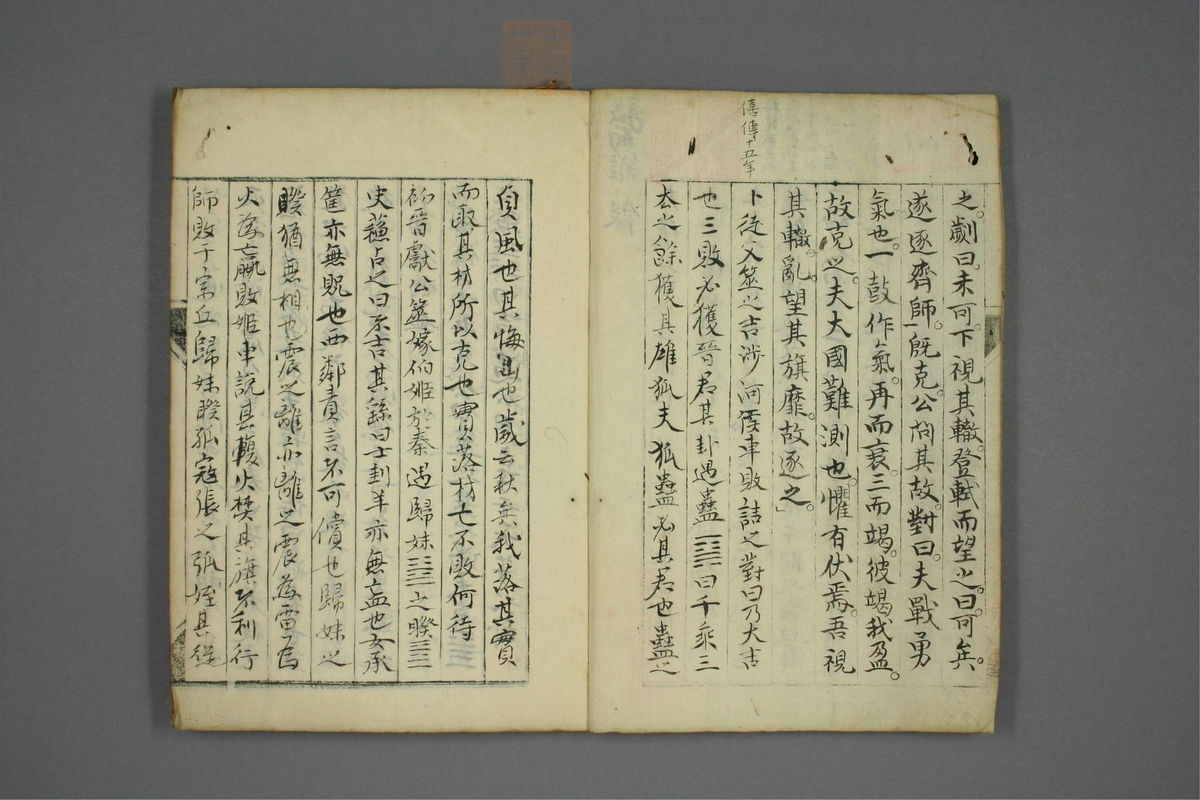 僖傳十五年
之。劌曰。未可。下視其轍。登軾而望之。曰。可矣。
遂逐齊師。既克。公問其故。對曰。夫戰勇
氣也。一鼓作氣。再而衰。三而竭。彼竭我盈。
故克之。夫大國難測也。懼有伏焉。吾視
其轍亂。望其旗靡。故逐之。」
卜徒父筮之吉涉河侯車敗詰之對曰乃大吉
也三敗必獲晉君其卦遇蠱䷑曰千乘三
去之餘獲其雄狐夫狐蠱必其君也蠱之
貞風也其悔山也歲云秋矣我落其實
而取其材所以克也實落材亡不敗何待
初晉獻公筮嫁伯姬於秦遇歸妹䷵之睽䷥
史蘇占之曰不吉其繇曰士刲羊亦無衁也女承
筐亦無貺也西鄰責言不可償也歸妹之
睽猶無相也震之離亦離之震為雷為
火為嬴敗姬車說其輹火焚其旗不利行
師敗于宗丘歸妹睽孤寇張之弧姪其從